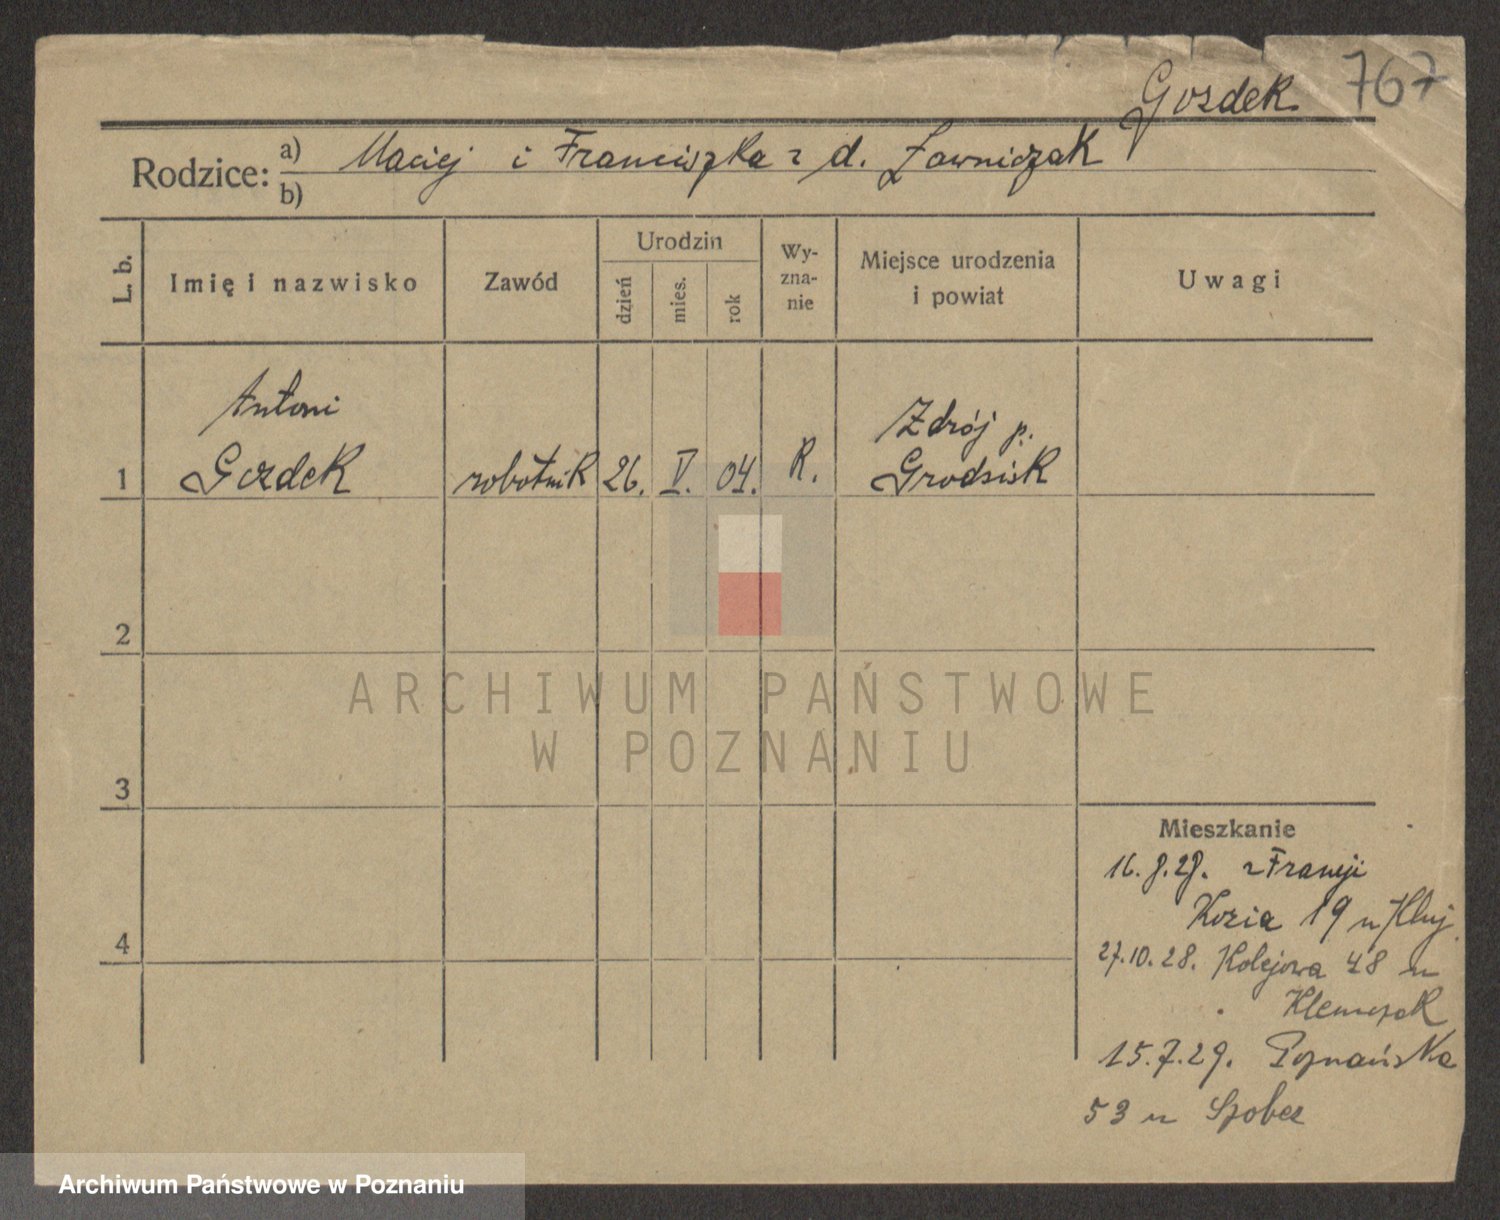 Gozdek 767
Rodzice: a) Maciej i Franciszka z d. Ławniczak
b)
L. b.
Imię i nazwisko
Zawód
Urodzin
dzień
mies.
rok
Wy-
zna-
nie
Miejsce urodzenia
i powiat
Uwagi
Antoni
Zdrój p.
1 Gozdek robotnik 26. V. 04. R. Grodzisk
2
ARCHIWUM PAŃSTWOWE
W POZNANIU
3
Mieszkanie
16.8.28. z Francji
Kozia 19 u
4
27.10.28. Kolejowa 48 u
Klemczak
15.7.29. Poznańska
53 u Szober
Archiwum Państwowe w Poznaniu